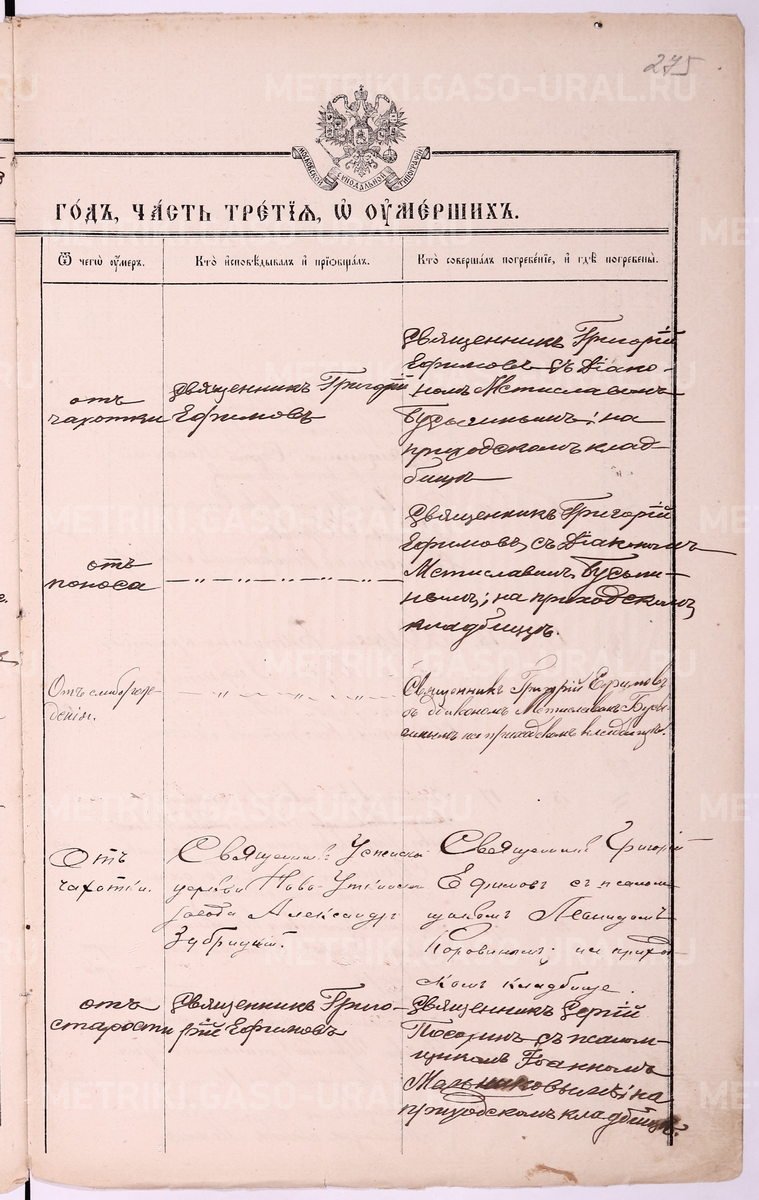 275
МОСКОВСКОЙ СѴНОДАЛЬНОЙ ТИПОГРАФІИ
ГО́ДЪ, ЧА́СТЬ ТРЕ́ТІѦ, Ѡ҆ ОУ҆МЕ́РШИХЪ.
Ѿ чегѡ̀ оу҆́меръ.
Кто̀ и҆сповѣ́дывалъ и҆ прїѡбща́лъ.
Кто̀ соверша́лъ погребе́нїе, и҆ гдѣ̀ погребены̀.
отъ
чахотки
Священникъ Григорій
Ефимовъ
Священникъ Григорій
Ефимовъ съ діако-
номъ Мстиславомъ
на
приходскомъ клад-
бищѣ
отъ
поноса
— „ — „ — „ —
Священникъ Григорій
Ефимовъ, съ діакономъ
Мстиславомъ
на приходскомъ
кладбищѣ.
Отъ слаборож-
денія.
— „ — „ — „ —
Священникъ Григорій Ефимовъ
съ діакономъ Мстиславомъ
на приходскомъ кладбищѣ.
Отъ
чахотки.
Священникъ Успенской
церкви Ново-Уткинскаго
завода Александръ
Зубрицкій.
Священникъ Григорій
Ефимовъ съ псалом-
щикомъ Леонидомъ
Коровинымъ; на приход-
скомъ кладбище.
отъ
старости
Священникъ Григо-
рій Ефимовъ
Священникъ Сергій
съ псалом-
щикомъ Іоанномъ
на
приходскомъ кладбищѣ.
METRIKI.GASO-URAL.RU